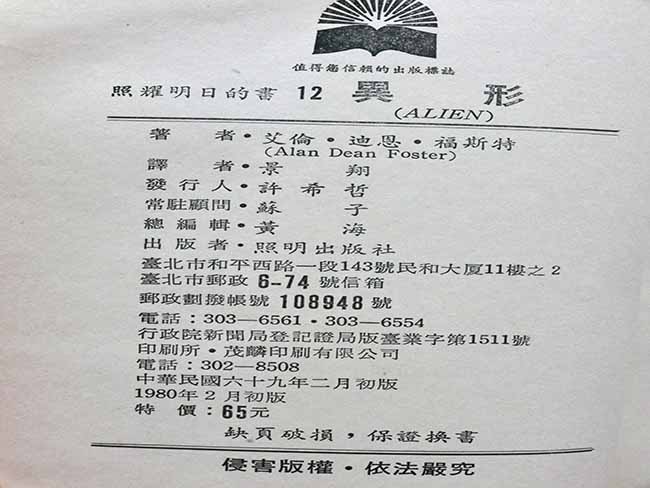 值得您信賴的出版標誌
照耀明日的書 12 異形
(ALIEN)
著者·艾倫·迪恩·福斯特
(Alan Dean Foster)
譯者·景翔
發行人·許希哲
常駐顧問·蘇子
總編輯·黃海
出版者·照明出版社
臺北市和平西路一段143號民和大厦11樓之2
臺北市郵政6-74號信箱
郵政劃撥帳號108948號
電話:303-6561·303-6554
行政院新聞局登記證局版臺業字第1511號
印刷所·茂麟印刷有限公司
電話:302-8508
中華民國六十九年二月初版
1980年2月初版
特價:65元
缺頁破損,保證換書
侵害版權·依法嚴究